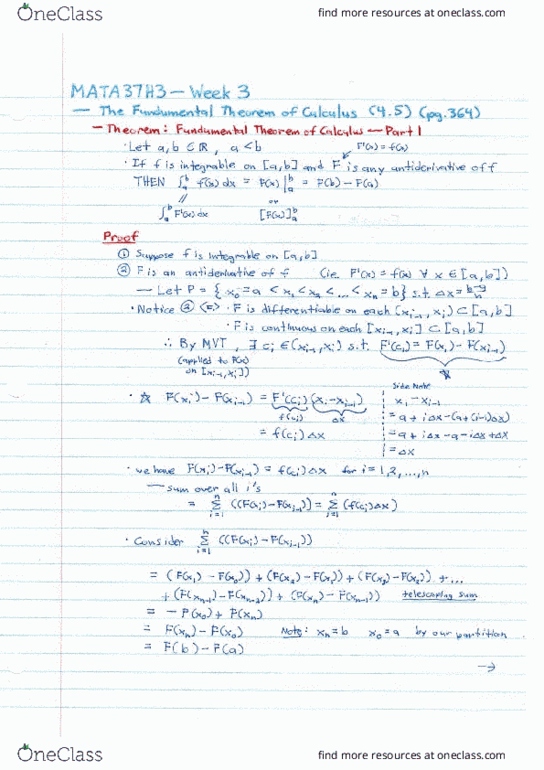 OneClass
find more resources at oneclass.com
MATA37H3 — Week 3
— The Fundumental Theorem of Calculus (4.5) (pg.364)
— Theorem: Fundumental Theorem of Calculus — Part 1
· Let a,b ⊂ ℝ, a < b
F'(x) = f(x)
· If f is integrable on [a,b] and F is any antiderivative of f
THEN ∫_a^b f(x) dx = F(x) |_a^b = F(b) - F(a)
∫_a^b F'(x) dx or [F(x)]_a^b
Proof
① Suppose f is integrable on [a,b]
② F is an antiderivative of f (ie. F'(x) = f(x) ∀ x ∈ [a,b])
— Let P = { x_0 = a < x_1 < x_2 < ... < x_n = b } s.t. Δx = (b-a)/n
· Notice ② <=> · F is differentiable on each (x_{i-1}, x_i) ⊂ [a,b]
· F is continuous on each [x_{i-1}, x_i] ⊂ [a,b]
∴ By MVT, ∃ c_i ∈ (x_{i-1}, x_i) s.t. F'(c_i) = F(x_i) - F(x_{i-1})
(applied to F(x)
on [x_{i-1}, x_i])
· ☆ F(x_i) - F(x_{i-1}) = F'(c_i) (x_i - x_{i-1})
f(c_i) Δx
= f(c_i) Δx
Side Note
x_i - x_{i-1}
= a + iΔx - (a + (i-1)Δx)
= a + iΔx - a - iΔx + Δx
= Δx
· we have F(x_i) - F(x_{i-1}) = f(c_i) Δx for i = 1,2,...,n
— sum over all i's
= Σ_{i=1}^n ((F(x_i) - F(x_{i-1})) = Σ_{i=1}^n (f(c_i) Δx)
· Consider Σ_{i=1}^n ((F(x_i) - F(x_{i-1}))
= (F(x_1) - F(x_0)) + (F(x_2) - F(x_1)) + (F(x_3) - F(x_2)) + ...
+ (F(x_{n-1}) - F(x_{n-2})) + (F(x_n) - F(x_{n-1})) telescoping sum
= - F(x_0) + F(x_n)
= F(x_n) - F(x_0) Note: x_n = b x_0 = a by our partition
= F(b) - F(a)
→
OneClass
find more resources at oneclass.com